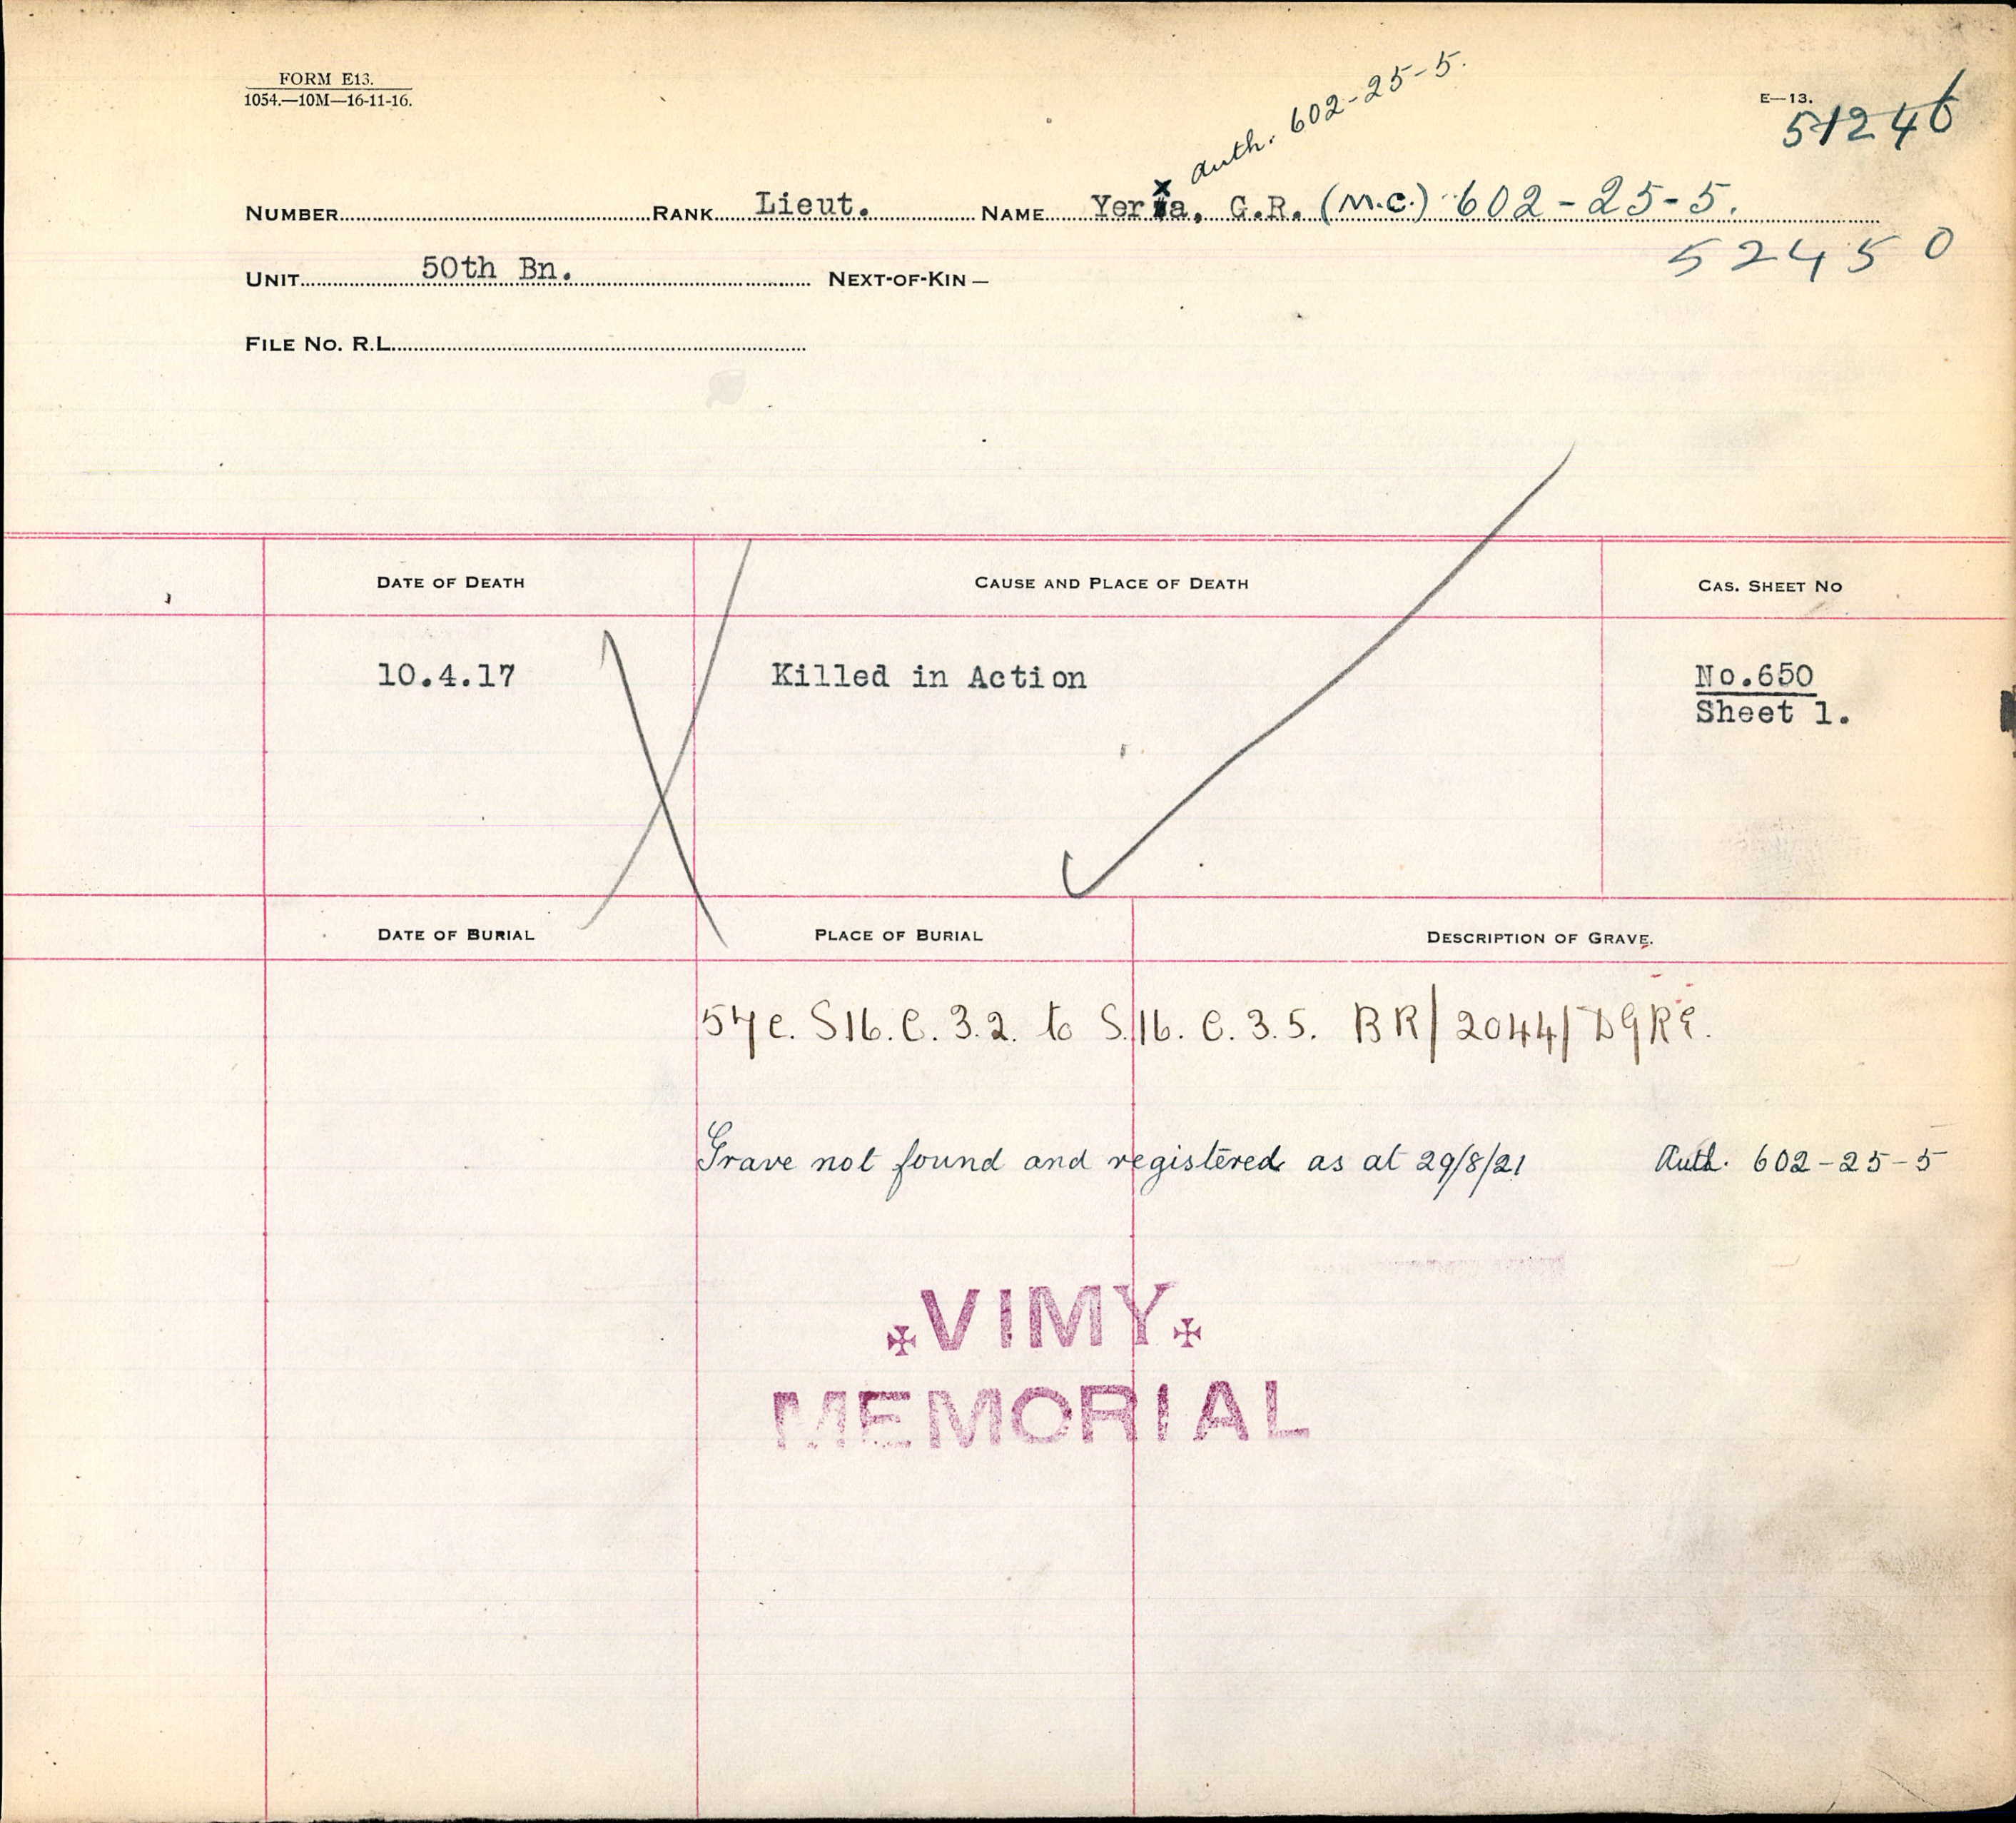 FORM E13.
1054.—10M—16-11-16.
Auth. 602-25-5.
E—13.
51246
NUMBER RANK Lieut. NAME Yerxa, G.R. (M.C.) 602-25-5.
52450
UNIT 50th Bn. NEXT-OF-KIN —
FILE No. R.L.
DATE OF DEATH CAUSE AND PLACE OF DEATH CAS. SHEET No
10.4.17 Killed in Action No.650
Sheet 1.
DATE OF BURIAL PLACE OF BURIAL DESCRIPTION OF GRAVE.
57c. S16.C.3.2. to S.16.C.3.5. BR/2044/DGRE.
Grave not found and registered as at 29/8/21 Auth. 602-25-5
VIMY
MEMORIAL